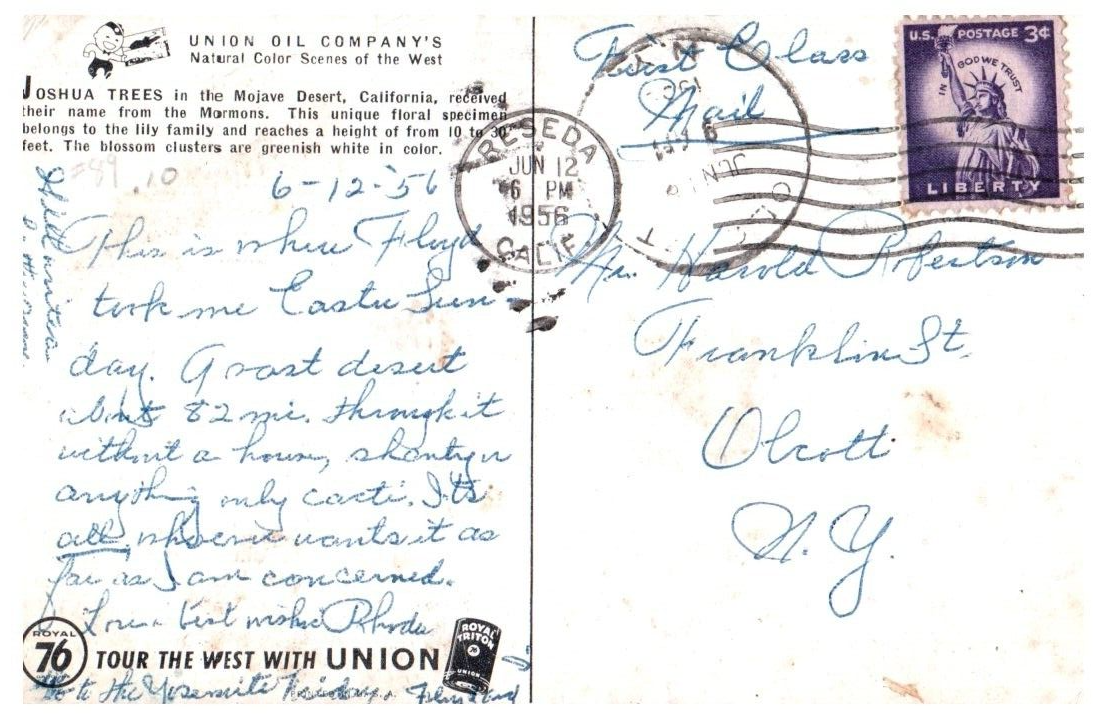 UNION OIL COMPANY'S
Natural Color Scenes of the West
JOSHUA TREES in the Mojave Desert, California, received
their name from the Mormons. This unique floral specimen
belongs to the lily family and reaches a height of from 10 to 30
feet. The blossom clusters are greenish white in color.
.10
6-12-'56
This is where Floyd
took me Easter Sun-
day. A vast desert
about 82 mi. through it
without a house, shanty or
anything only cacti. It's
all whoever wants it as
far as I am concerned.
Love & best wishes Rhoda
ROYAL
76
TOUR THE WEST WITH UNION
ROYAL
TRITON
76
UNION
to the Yosemite Friday
First Class
Mail
RESEDA
JUN 12
6 PM
1956
CALIF.
U.S. POSTAGE 3¢
IN GOD WE TRUST
LIBERTY
Mr. Harold Robertson
Franklin St.
Olcott
N.Y.